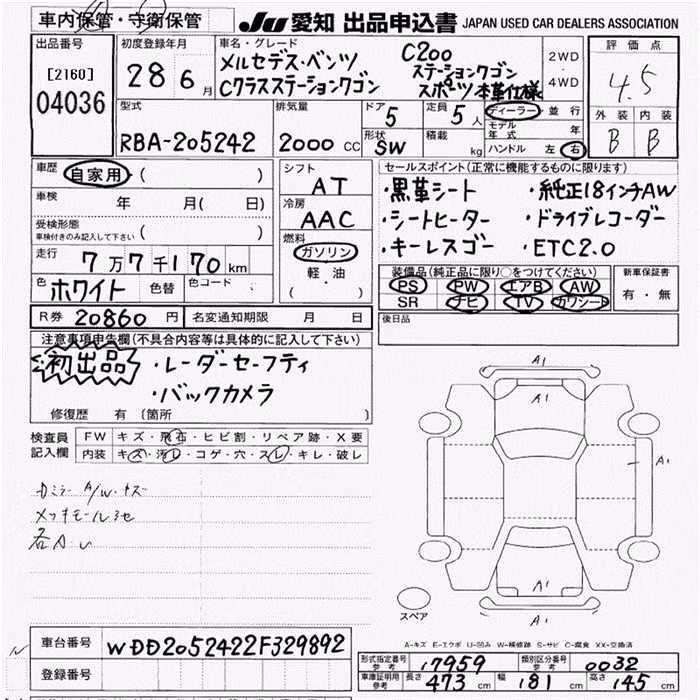 車内保管・守衛保管
JU 愛知 出品申込書 JAPAN USED CAR DEALERS ASSOCIATION
出品番号
[2160]
04036
初度登録年月
28 6月
車名・グレード
メルセデス・ベンツ C200
Cクラスステーションワゴン ステーションワゴン
スポーツ本革仕様
2WD
4WD
評価点
4.5
外装 内装
B B
型式
RBA-205242
排気量
2000 CC
ドア
5
形状
SW
定員
5人
積載
kg
ディーラー・並行
モデル年式 年
ハンドル 左 右
車歴
自家用 ( )
車検 年 月( 日)
受検形態
車検付きのみ記入して下さい ( )
走行
7万7千170km
色 ホワイト 色替 色コード
シフト
AT
冷房
AAC
燃料
ガソリン
軽・油
( )
セールスポイント(正常に機能するものに限ります)
・黒革シート ・純正18インチAW
・シートヒーター ・ドライブレコーダー
・キーレスゴー ・ETC2.0
装備品(純正品に限り○をつけてください)
PS PW エアB AW
SR ナビ TV カワシート
新車保証書
有・無
R券 20860円 名変通知期限 月 日
後日品
注意事項申告欄(不具合内容等は具体的に記入して下さい)
初出品 ・レーダーセーフティ
・バックカメラ
修復歴 有 (箇所 )
検査員記入欄
FW キズ・飛石・ヒビ割・リペア跡・X要
内装 キズ・汚レ・コゲ・穴・スレ・キレ・破レ
A1
A1
A1
A1
A1
スペア
A-キズ E-エクボ U-凹み W-補修跡 S-サビ C-腐食 XX-交換済
車台番号 WDD2052422F329892
登録番号
形式指定番号 参考 17959 類別区分番号 参考 0032
車庫証明用 参考 長さ 473cm 幅 181cm 高さ 145cm